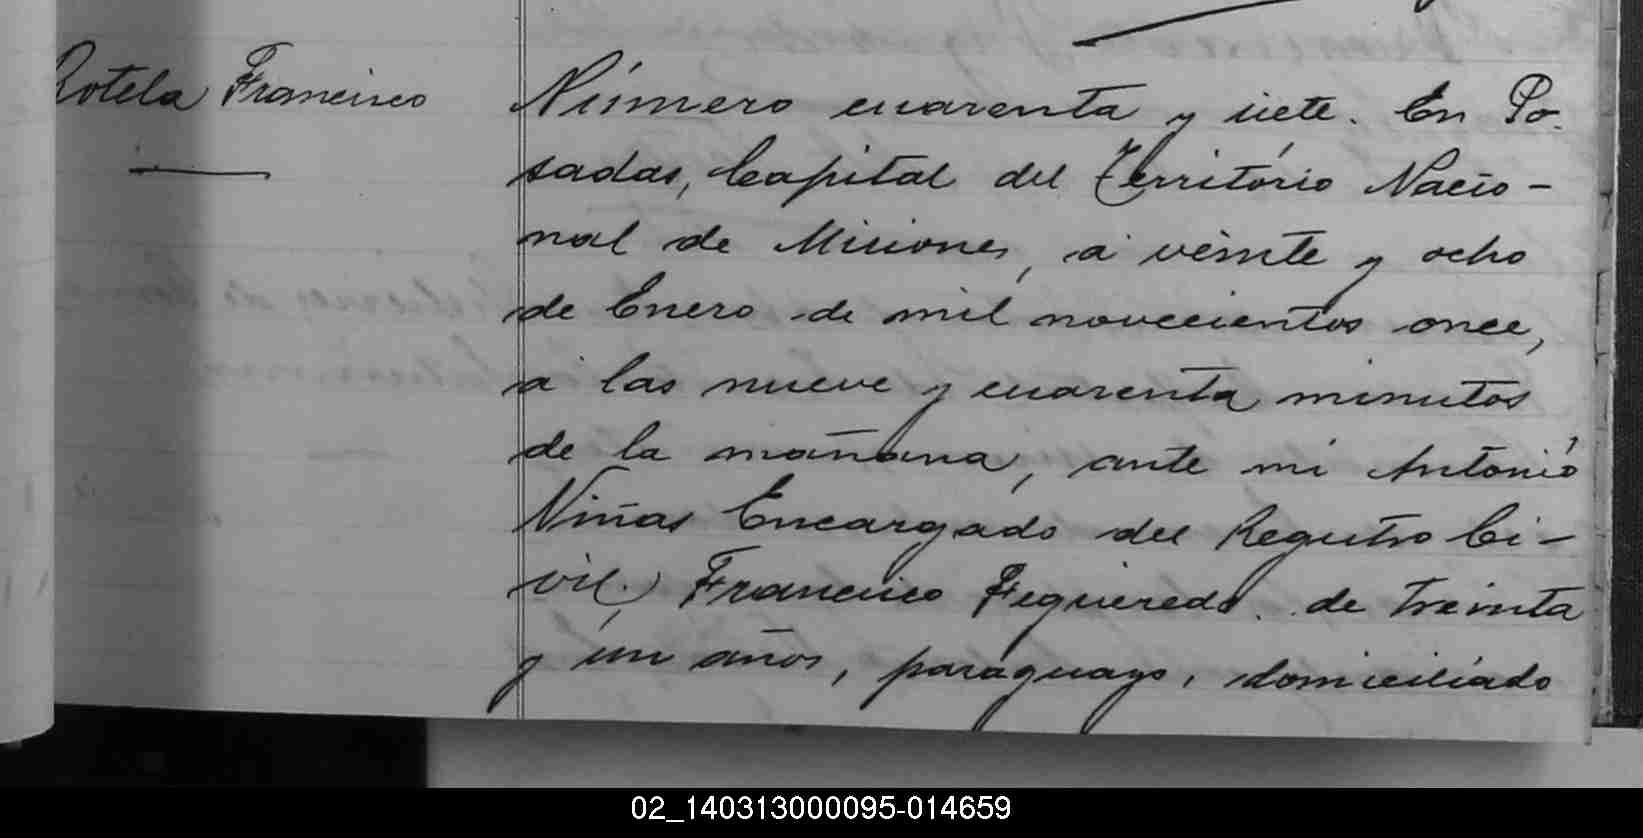 Rotela Francisco
Número cuarenta y siete. En Po-
sadas, Capital del Território Nacio-
nal de Misiones, á veinte y ocho
de Enero de mil novecientos once,
á las nueve y cuarenta minutos
de la mañana, ante mi Antonio
Viñas Encargado del Registro Ci-
vil, Francisco Figueredo de treinta
y un años, paraguayo, domiciliado
02_140313000095-014659